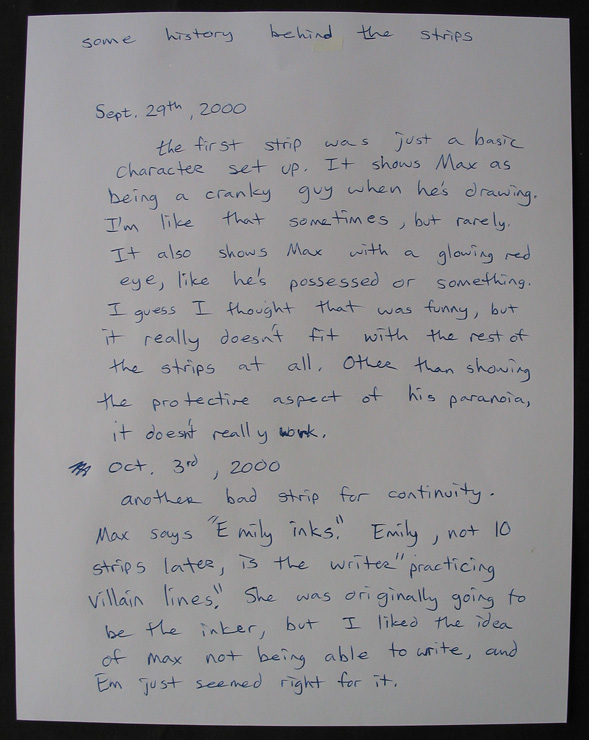 some history behind the strips
Sept. 29th, 2000
the first strip was just a basic
character set up. It shows Max as
being a cranky guy when he's drawing.
I'm like that sometimes, but rarely.
It also shows Max with a glowing red
eye, like he's possessed or something.
I guess I thought that was funny, but
it really doesn't fit with the rest of
the strips at all. Other than showing
the protective aspect of his paranoia,
it doesn't really work.
Oct. 3rd, 2000
another bad strip for continuity.
Max says "Emily inks." Emily, not 10
strips later, is the writer "practicing
villain lines." She was originally going to
be the inker, but I liked the idea
of max not being able to write, and
Em just seemed right for it.